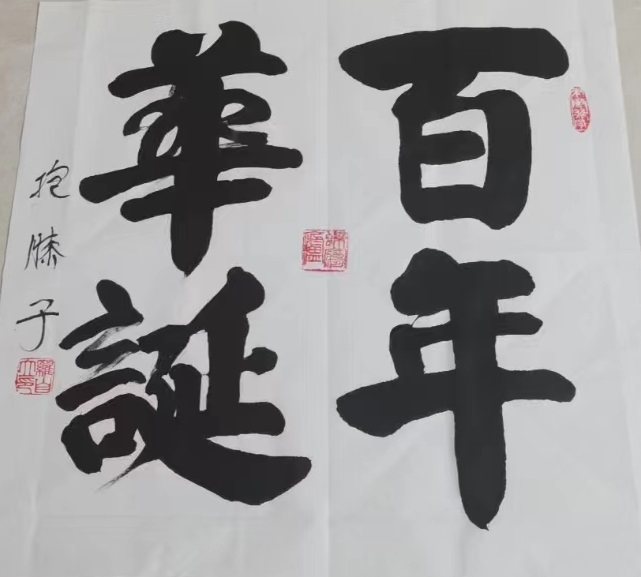 百年
華誕
抱膝子